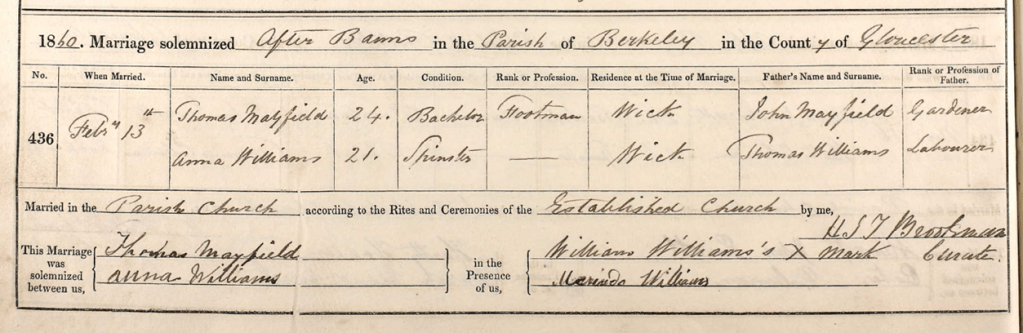 1860. Marriage solemnized After Banns in the Parish of Berkeley in the County of Gloucester
No. When Married. Name and Surname. Age. Condition. Rank or Profession. Residence at the Time of Marriage. Father's Name and Surname. Rank or Profession of Father.
436 Febry 13th Thomas Mayfield 24. Bachelor Footman Wick John Mayfield Gardener
Anna Williams 21. Spinster — Wick Thomas Williams Labourer
Married in the Parish Church according to the Rites and Ceremonies of the Established Church by me,
This Marriage was solemnized between us, Thomas Mayfield in the Presence of us, William Williams's X Mark Curate.
Anna Williams Williams